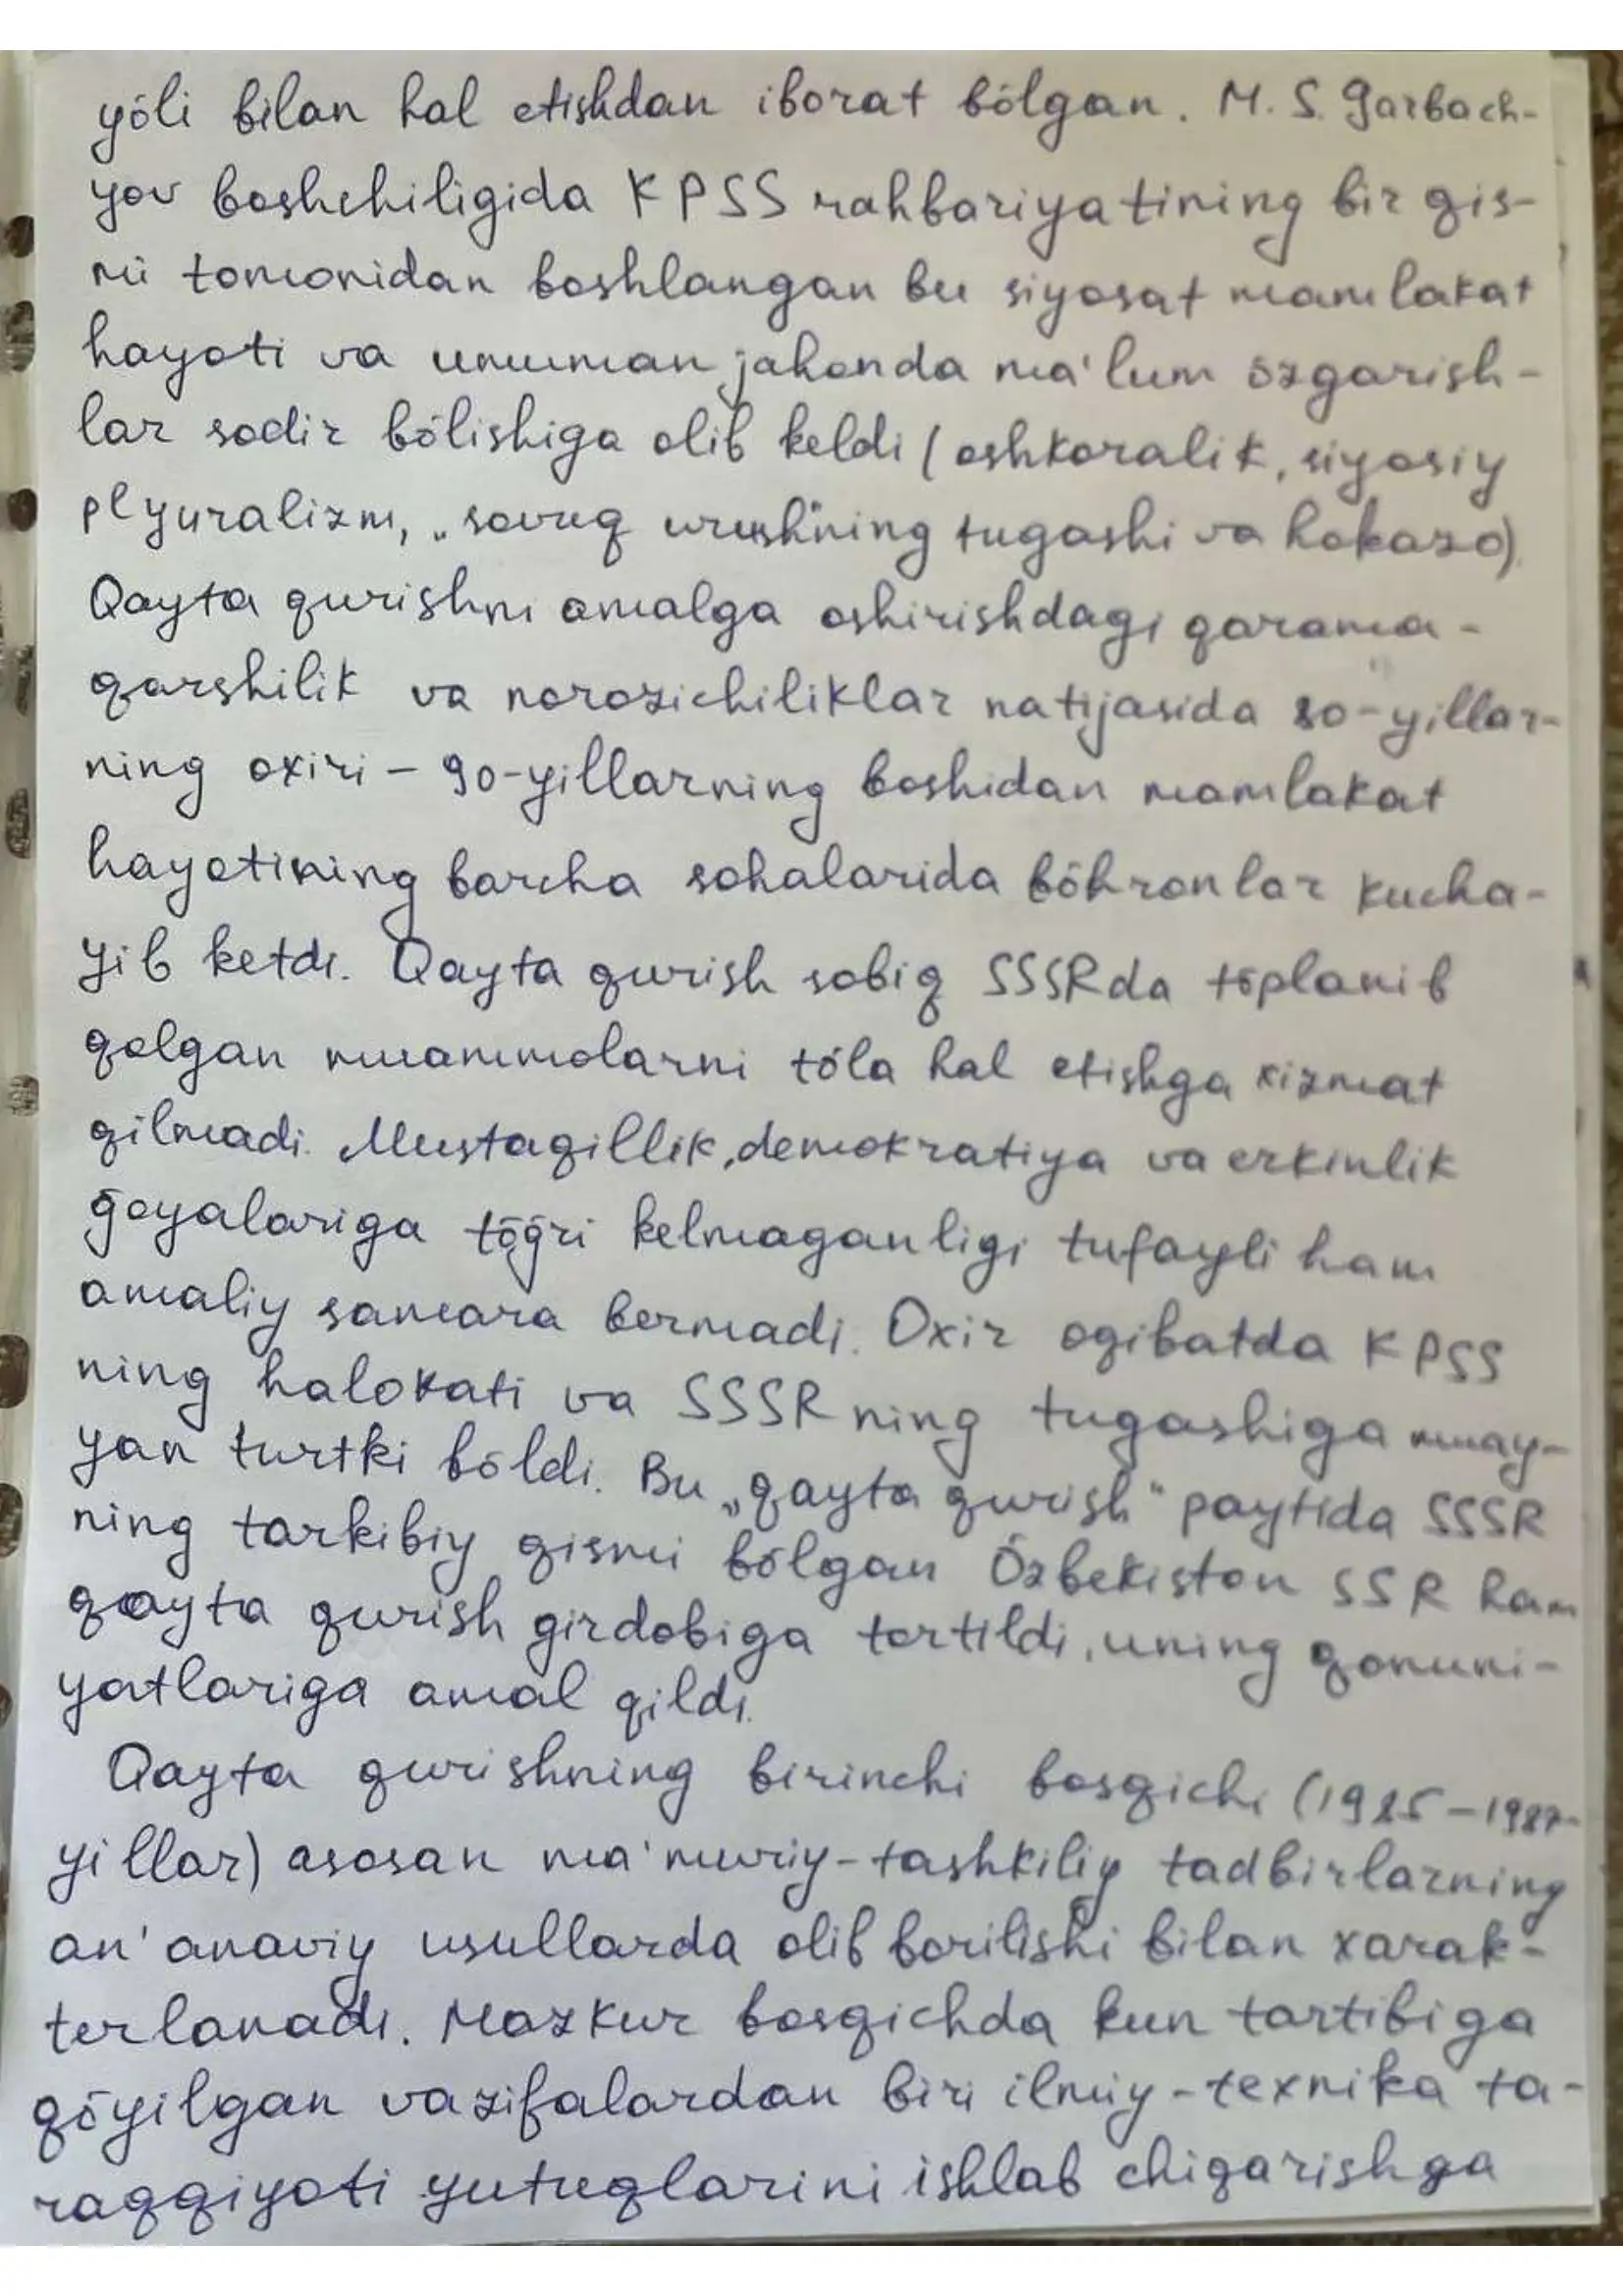 yóli bilan hal etishdan iborat bólgan. M. S. Garbach-
yov boshchiligida KPSS rahbariyatining bir qis-
mi tomonidan boshlangan bu siyosat mamlakat
hayoti va umuman jahonda ma'lum özgarish-
lar sodir bólishiga olib keldi (oshkoralik, siyosiy
plyuralizm, „sovuq urush"ning tugashi va hokazo).
Qayta qurishni amalga oshirishdagi qarama-
qarshilik va norozichiliklar natijasida 80-yillar-
ning oxiri – 90-yillarning boshidan mamlakat
hayotining barcha sohalarida bóhronlar kucha-
yib ketdi. Qayta qurish sobiq SSSRda töplanib
qolgan muammolarni tóla hal etishga xizmat
qilmadi. Mustaqillik, demokratiya va erkinlik
ḡoyalariga tōḡri kelmaganligi tufayli ham
amaliy samara bermadi. Oxir oqibatda KPSS
ning halokati va SSSR ning tugashiga muay-
yan turtki bóldi. Bu „qayta qurish" paytida SSSR
ning tarkibiy qismi bólgan Ózbekiston SSR ham
qayta qurish girdobiga tortildi, uning qonuni-
yatlariga amal qildi.
Qayta qurishning birinchi bosqichi (1985–1987-
yillar) asosan ma'muriy-tashkiliy tadbirlarning
an'anaviy usullarda olib borilishi bilan xarak-
terlanadi. Mazkur bosqichda kun tartibiga
qōyilgan vazifalardan biri ilmiy-texnika ta-
raqqiyoti yutuqlarini ishlab chiqarishga